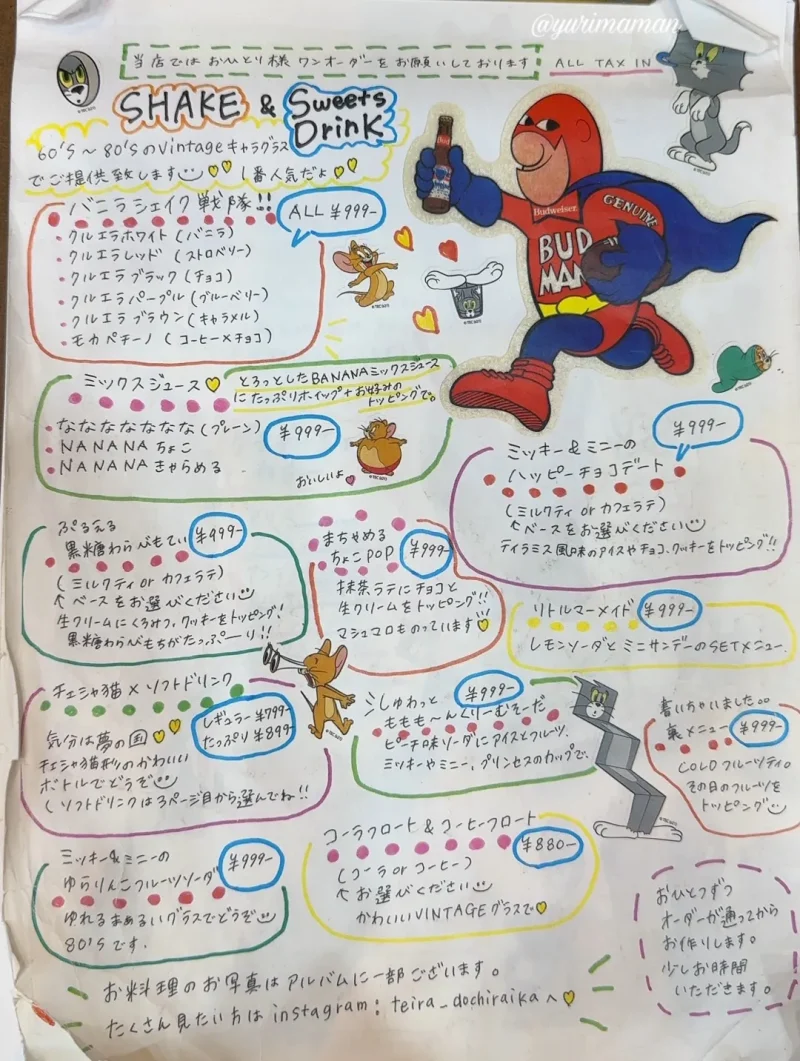 @yurimaman
当店では おひとり様 ワンオーダーを お願いしております
ALL TAX IN
SHAKE & Sweets DrinK
60'S ～ 80'SのVintageキャラグラス
でご提供致します 1番人気だよ
バニラシェイク戦隊!!
ALL ¥999-
・クルエラホワイト(バニラ)
・クルエラレッド(ストロベリー)
・クルエラブラック(チョコ)
・クルエラパープル(ブルーベリー)
・クルエラブラウン(キャラメル)
・モカペチーノ(コーヒー×チョコ)
Budweiser
GENUINE
BUD
MAN
ミックスジュース
とろっとしたBANANAミックスジュース
にたっぷりホイップ+お好みの
トッピングで。
・ななななななな(プレーン)
・NANANAちょこ
・NANANAきゃらめる
¥999-
おいしいよ
¥999-
ミッキー&ミニーの
ハッピーチョコデート
(ミルクティ or カフェラテ)
↑ベースをお選びください
ティラミス風味のアイスやチョコ、クッキーをトッピング!!
ぷるえる
黒糖わらびもてぃ
¥999-
(ミルクティ or カフェラテ)
↑ベースをお選びください
生クリームにくるみっ、クッキーをトッピング!
黒糖わらびもちがたっぷーり!!
まちゃめる
ちょこPOP
¥999-
抹茶ラテにチョコと
生クリームをトッピング!!
マシュマロものっています
リトルマーメイド
¥999-
レモンソーダとミニサンデーのSETメニュー.
チェシャ猫×ソフトドリンク
レギュラー ¥799-
たっぷり ¥899-
気分は夢の国
チェシャ猫形のかわいい
ボトルでどうぞ
(ソフトドリンクは3ページ目から選んでね!!
¥999-
しゅわっと
ももも〜んくりーむそーだ
ピーチ味ソーダにアイスとフルーツ.
ミッキーやミニー、プリンセスのカップで.
書いちゃいました。。
裏メニュー
¥999-
COLDフルーツティ。
その日のフルーツを
トッピング
ミッキー&ミニーの
ゆらりんこフルーツソーダ
¥999-
ゆれるまぁるいグラスでどうぞ
80'Sです.
コーラフロート&コーヒーフロート
¥880-
(コーラ or コーヒー)
↑お選びください
かわいいVINTAGEグラスで
おひとつずつ
オーダーが通ってから
お作りします。
少しお時間
いただきます。
お料理のお写真はアルバムに一部ございます。
たくさん見たい方は instagram : teira_dochiraika へ